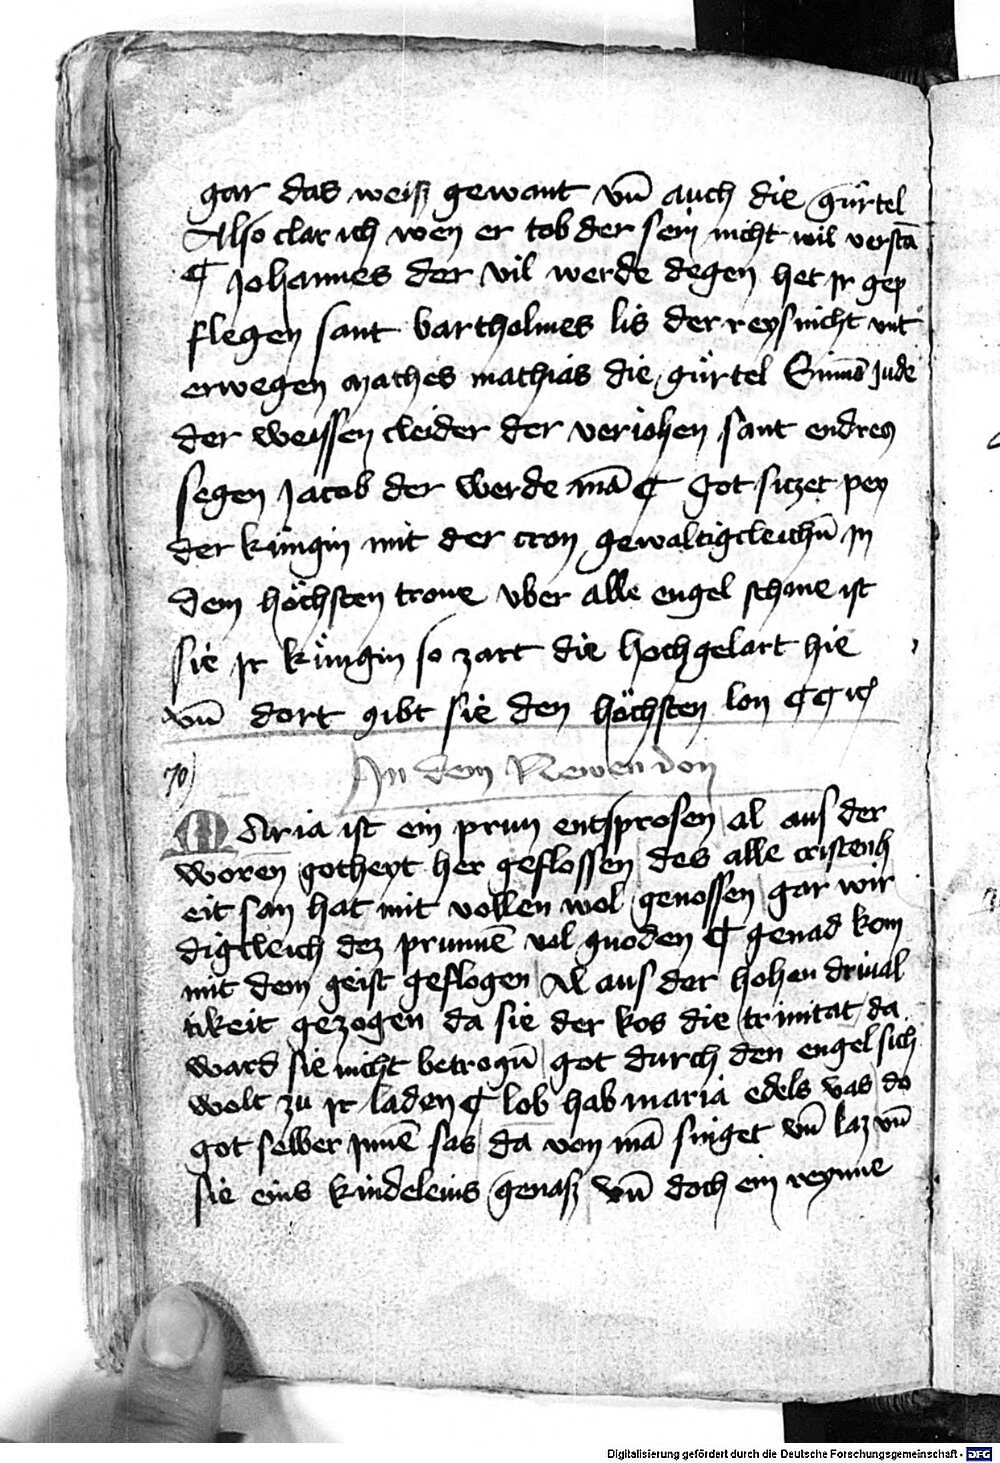 gar das weiß gewant vn̄ auch die gürtel
Also clar ich wen er tob der sein nicht wil verstā
¶ Johannes der vil werde degen het Jr gep
flegen sant bartholmes lis der reys nicht vnt
erwegen Matheis mathias die gürtel Simō Jude
der weissen cleider der veriohen sant endres
segen Jacob der werde mā ¶ got siczet pey
der küngin mit der cron gewaltigcleichn̄ Jn
dem höchsten trone vber alle engel schone ist
sie Jr küngin so zart die hochgelart hie
vn̄ dort gibt sie den höchsten lon
70)
Jn dem Newen don
Maria ist ein prun entsprosen al aus der
woren gotheyt her geflossen des alle cristenh
eit san hat mit vollen wol genossen gar wir
digcleich dez prunnē vol gnoden ¶ genad kom
mit dem geist geflogen Al aus der hohen driual
tikeit gezogen da sie der kos die trinitat da
ward sie nicht betrogn̄ got durch den engel sich
wolt zu Jr laden ¶ lob hab maria edels vas do
got selber Jnnē sas da von mā singet vn̄ laz vn̄
sie eins kindeleins genaß vn̄ doch ein reynne
Digitalisierung gefördert durch die Deutsche Forschungsgemeinschaft - DFG